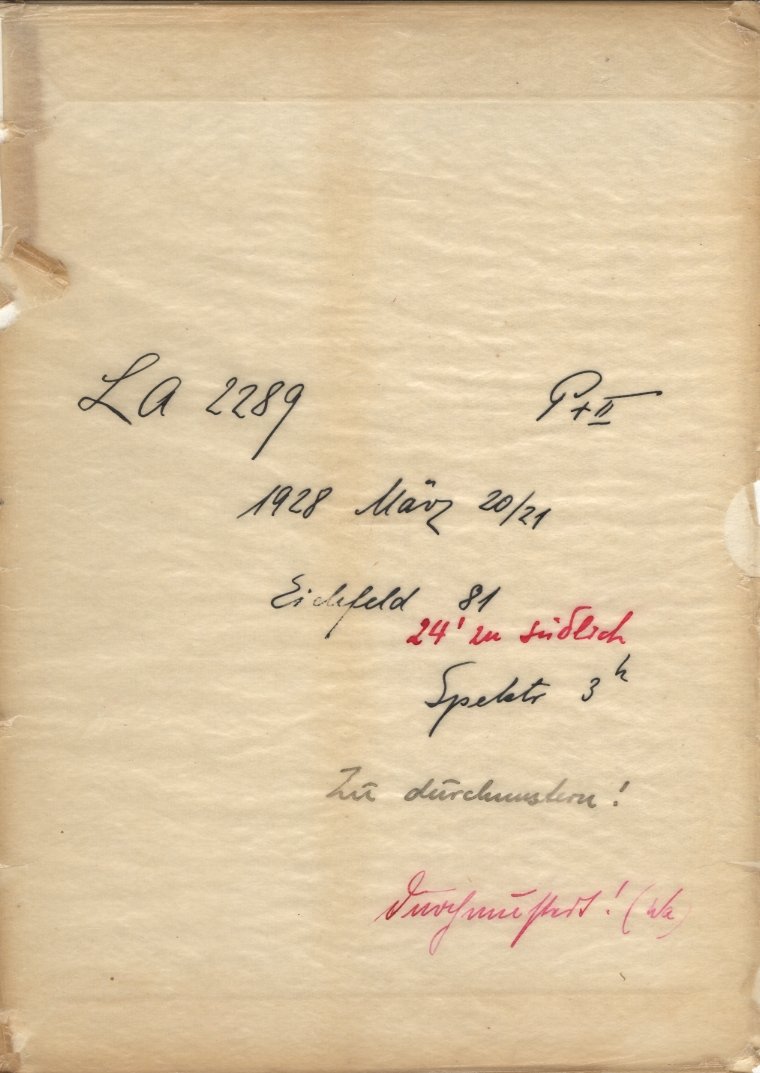 LA 2289 P+II
1928 März 20/21
Eichfeld 81
24' zu südlich
Spektr 3h
Zu durchmustern!
Durchmustert! (Wa)